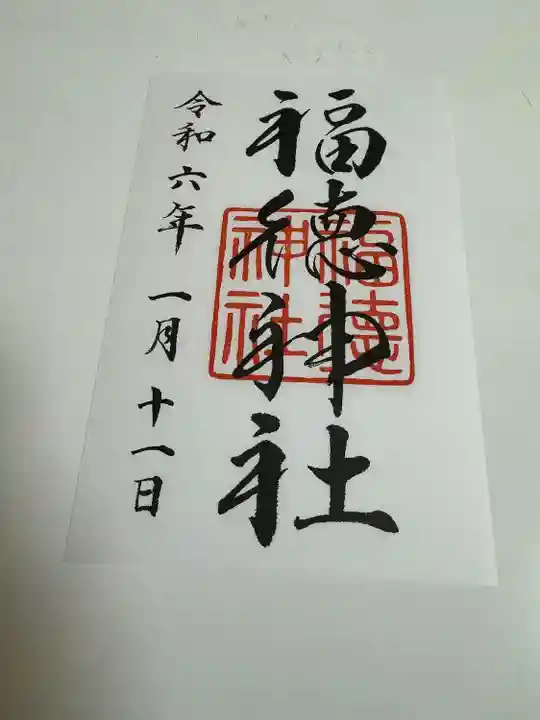 福徳神社
福徳神社
令和六年 一月 十一日